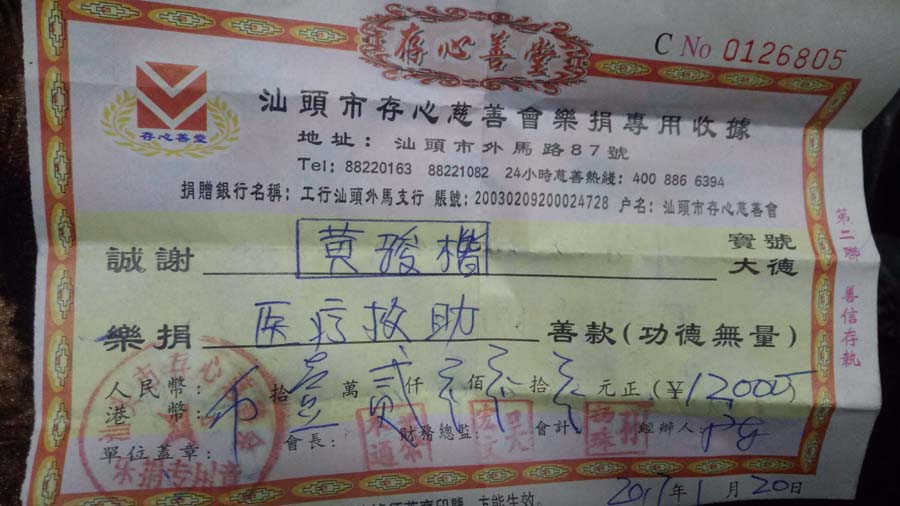 存心善堂
C No 0126805
存心善堂
汕頭市存心慈善會樂捐專用收據
地址：汕頭市外馬路87號
Tel: 88220163 88221082 24小時慈善熱綫: 400 886 6394
捐贈銀行名稱: 工行汕頭外馬支行 賬號: 20030209200024728 户名: 汕頭市存心慈善會
誠謝 黄骏楷 寶號 大德
樂捐 医疗救助 善款(功德無量)
人民幣: 港幣: 币 拾 壹 萬 贰 仟 零 佰 零 拾 零 元正 (¥12000
單位蓋章: 會長: 財務總監: 會計: 經辦人:
2017年1月20日
第二聯 善信存執